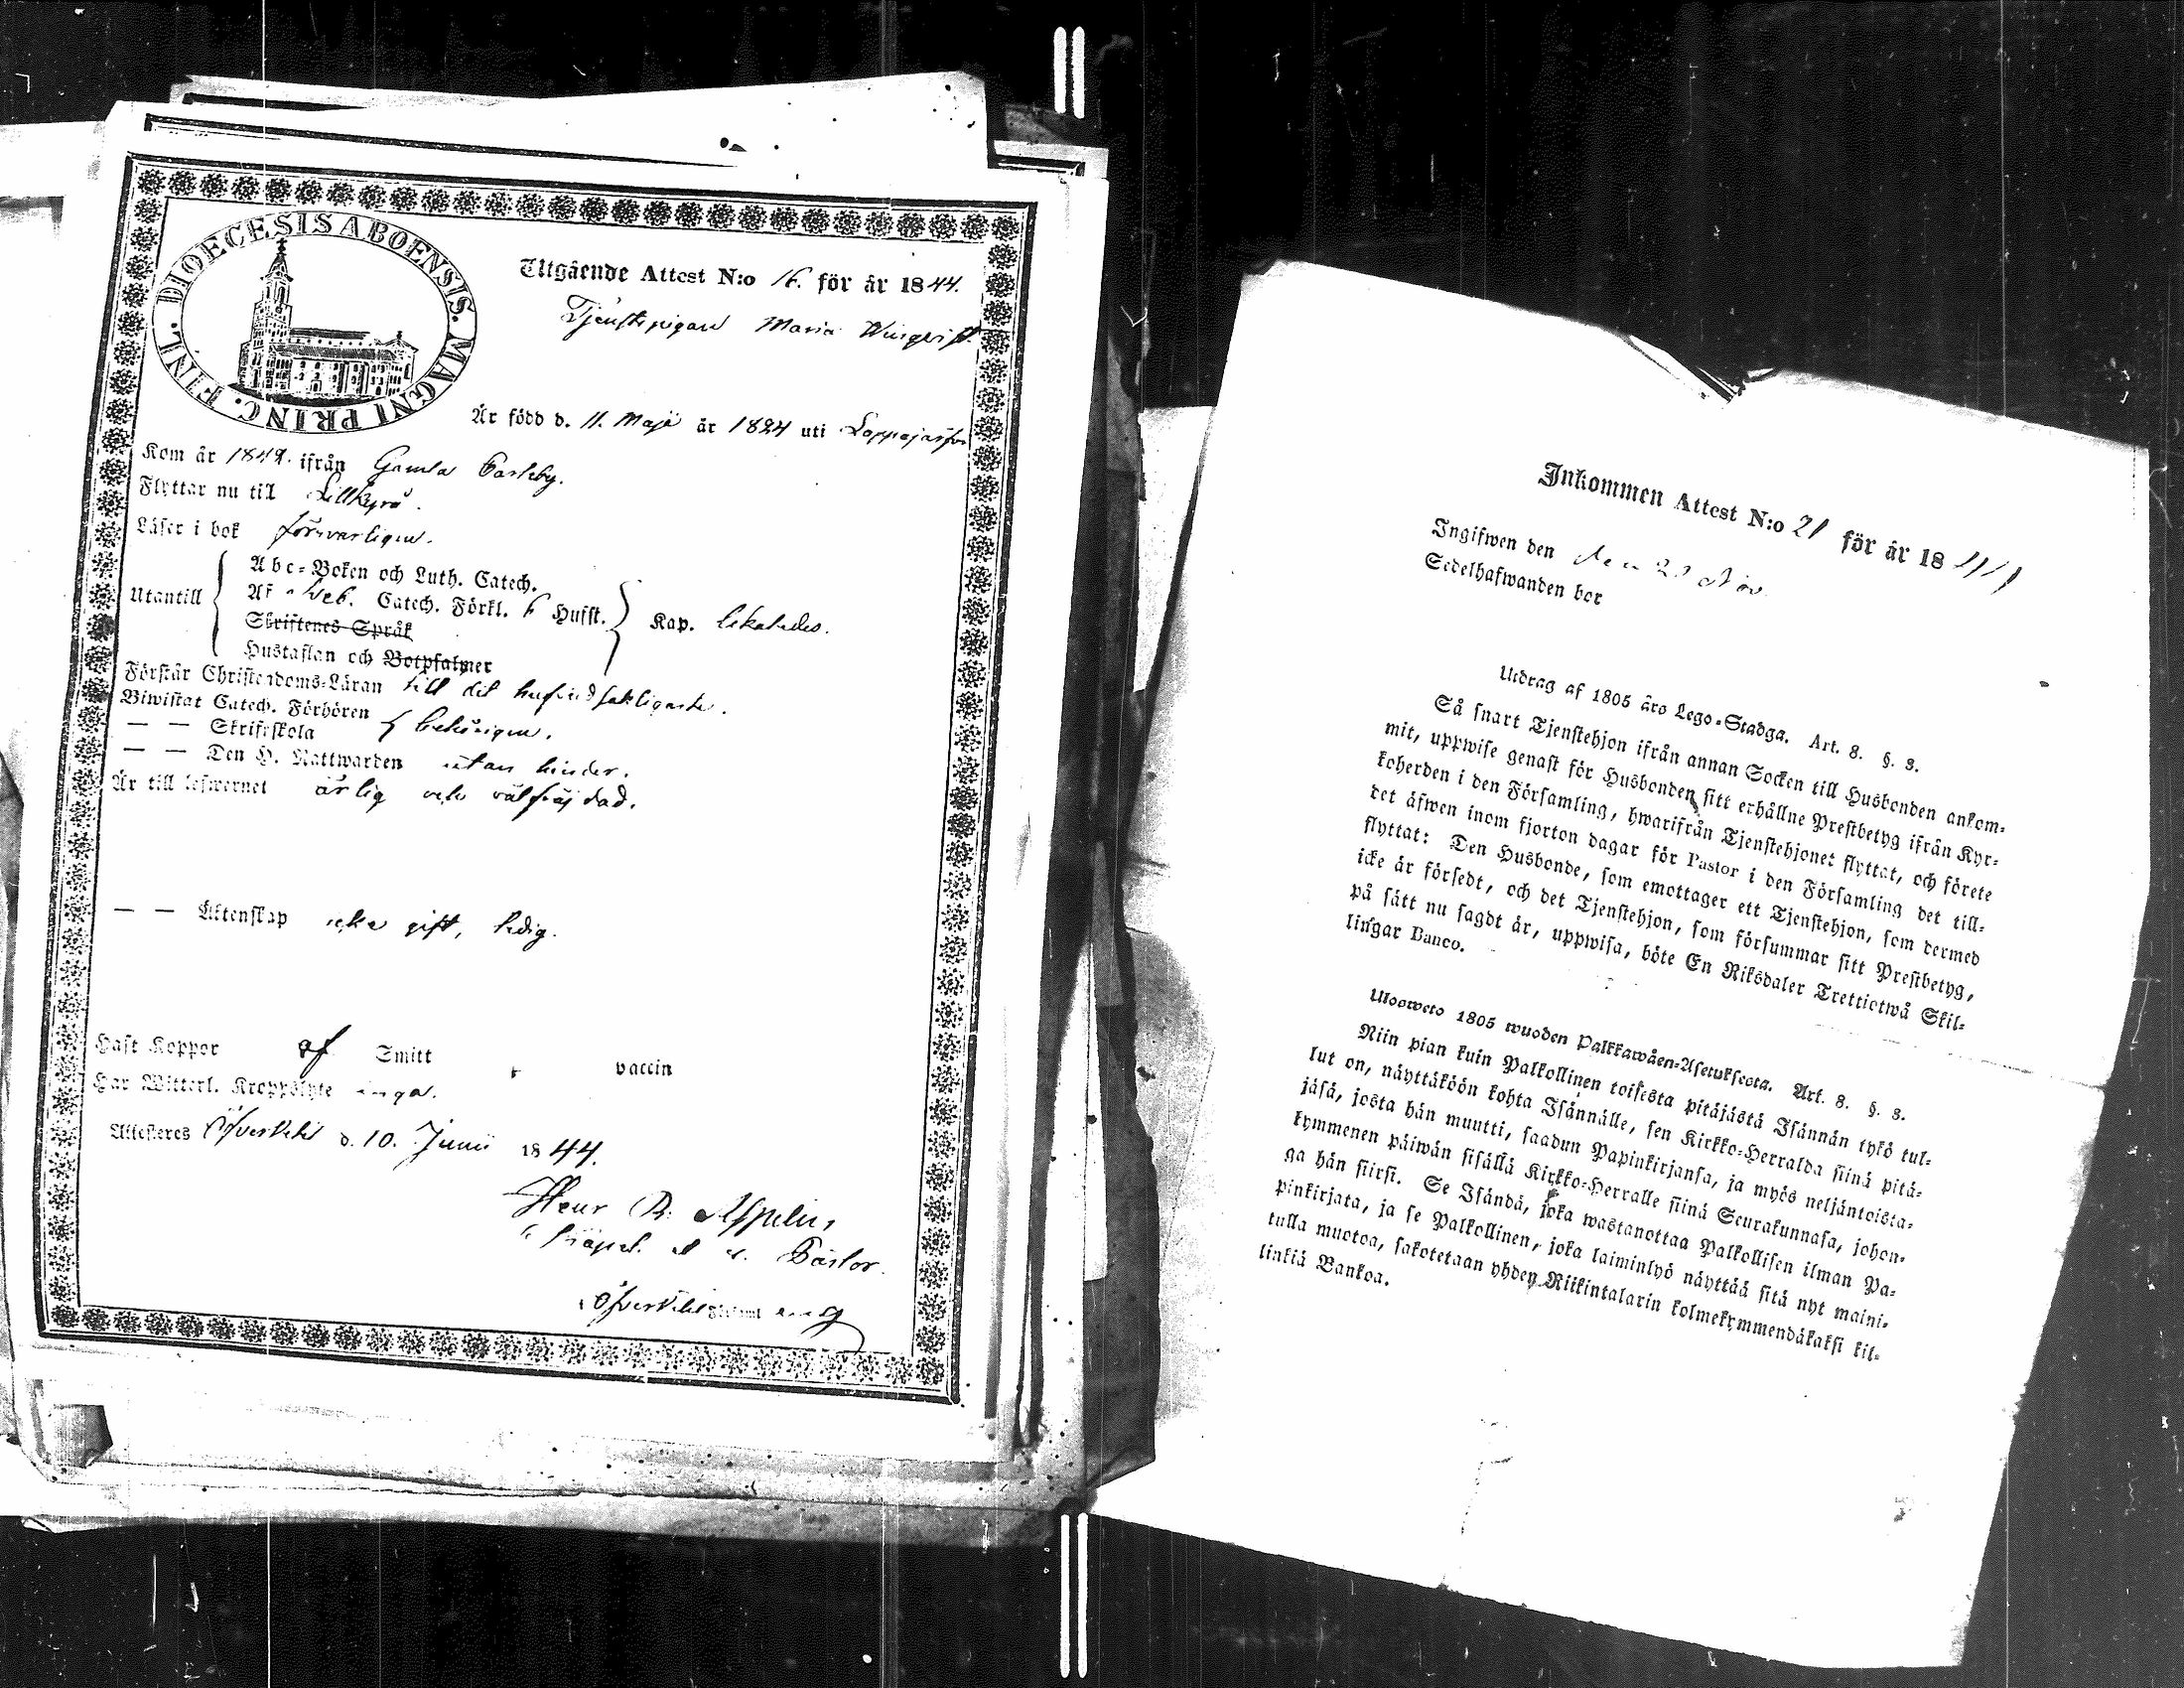 DIOECESIS ABOENSIS. MAGNI PRINC. FINL.
Utgående Attest N:o 16. för år 1844.
Tjenstepigan Maria Wingqvist
Är född d. 11. Maji år 1824 uti Lappajärfvi
Kom år 1842. ifrån Gamla Carleby.
Flyttar nu till Lillkyro.
Läser i bok försvarligen.
Utantill
Abc-Boken och Luth. Catech.
Af Sveb. Catech. Förkl. 6 Hufst.
Skriftenes Språk
Hustaflan och Botpsalmer
Kap.
Förstår Christendoms-Läran till det hufvudsakligaste.
Biwistat Catech. Förhören
— — Skriftskola
behörigen.
— — Den H. Nattwarden utan hinder.
Är till lefwernet ärlig och välfräjdad.
— — Äktenskap icke gift, ledig.
Haft Koppor af Smitt vaccin
Har Witterl. Kroppslyte inga.
Attesteras Öfvervetil d. 10. Junii 1844.
Henr R. Aspelin,
Kapel. Pastor.
Inkommen Attest N:o 21 för år 1844
Ingifwen den den Nov
Sedelhafwanden bor
Utdrag af 1805 års Lego-Stadga. Art. 8. §. 3.
Så snart Tjenstehjon ifrån annan Socken till Husbonden ankom-
mit, uppwise genast för Husbonden sitt erhållne Prestbetyg ifrån Kyr-
koherden i den Församling, hwarifrån Tjenstehjonet flyttat, och förete
det äfwen inom fjorton dagar för Pastor i den Församling det till-
flyttat: Den Husbonde, som emottager ett Tjenstehjon, som dermed
icke är försedt, och det Tjenstehjon, som försummar sitt Prestbetyg,
på sätt nu sagdt är, uppwisa, böte En Riksdaler Trettiotwå Skil-
lingar Banco.
Ulosweto 1805 wuoden Palkkawäen-Asetuksesta. Art. 8. §. 3.
Niin pian kuin Palkollinen toisesta pitäjästä Isännän tykö tul-
lut on, näyttäköön kohta Isännälle, sen Kirkko-Herralda siinä pitä-
jäsä, josta hän muutti, saadun Papinkirjansa, ja myös neljäntoista-
kymmenen päiwän sisällä Kirkko-Herralle siinä Seurakunnasa, johon-
ga hän siirsi. Se Isändä, joka wastanottaa Palkollisen ilman Pa-
pinkirjata, ja se Palkollinen, joka laiminlyö näyttää sitä nyt maini-
tulla muotoa, sakotetaan yhden Riikintalarin kolmekymmendäkaksi kil-
linkiä Bankoa.